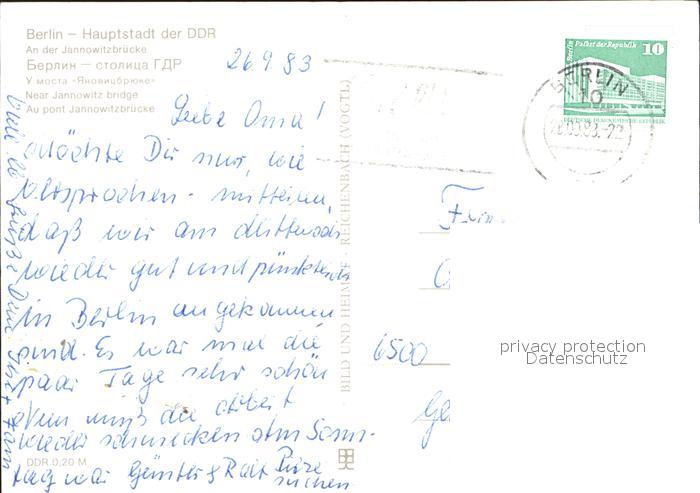 Berlin – Hauptstadt der DDR
An der Jannowitzbrücke
Берлин – столица ГДР
У моста «Яновицбрюке»
Near Jannowitz bridge
Au pont Jannowitzbrücke
26.9.83
Liebe Oma!
möchte Dir nur, wie
versprochen - mitteilen,
daß wir am Mittwoch
wieder gut und pünktlich
in Berlin angekommen
sind. Es war mal die
paar Tage sehr schön
Nun muß die Arbeit
wieder schmecken. Am Sonn-
tag war Günter & Ralf Pilze
suchen
DDR 0,20 M
BILD UND HEIMAT · REICHENBACH (VOGTL)
Berlin Palast der Republik
10
DEUTSCHE DEMOKRATISCHE REPUBLIK
BERLIN
10
-22
6500
Ge
privacy protection
Datenschutz